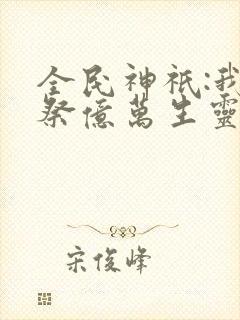 全民神祇:我
祭億萬生靈
宋俊峰